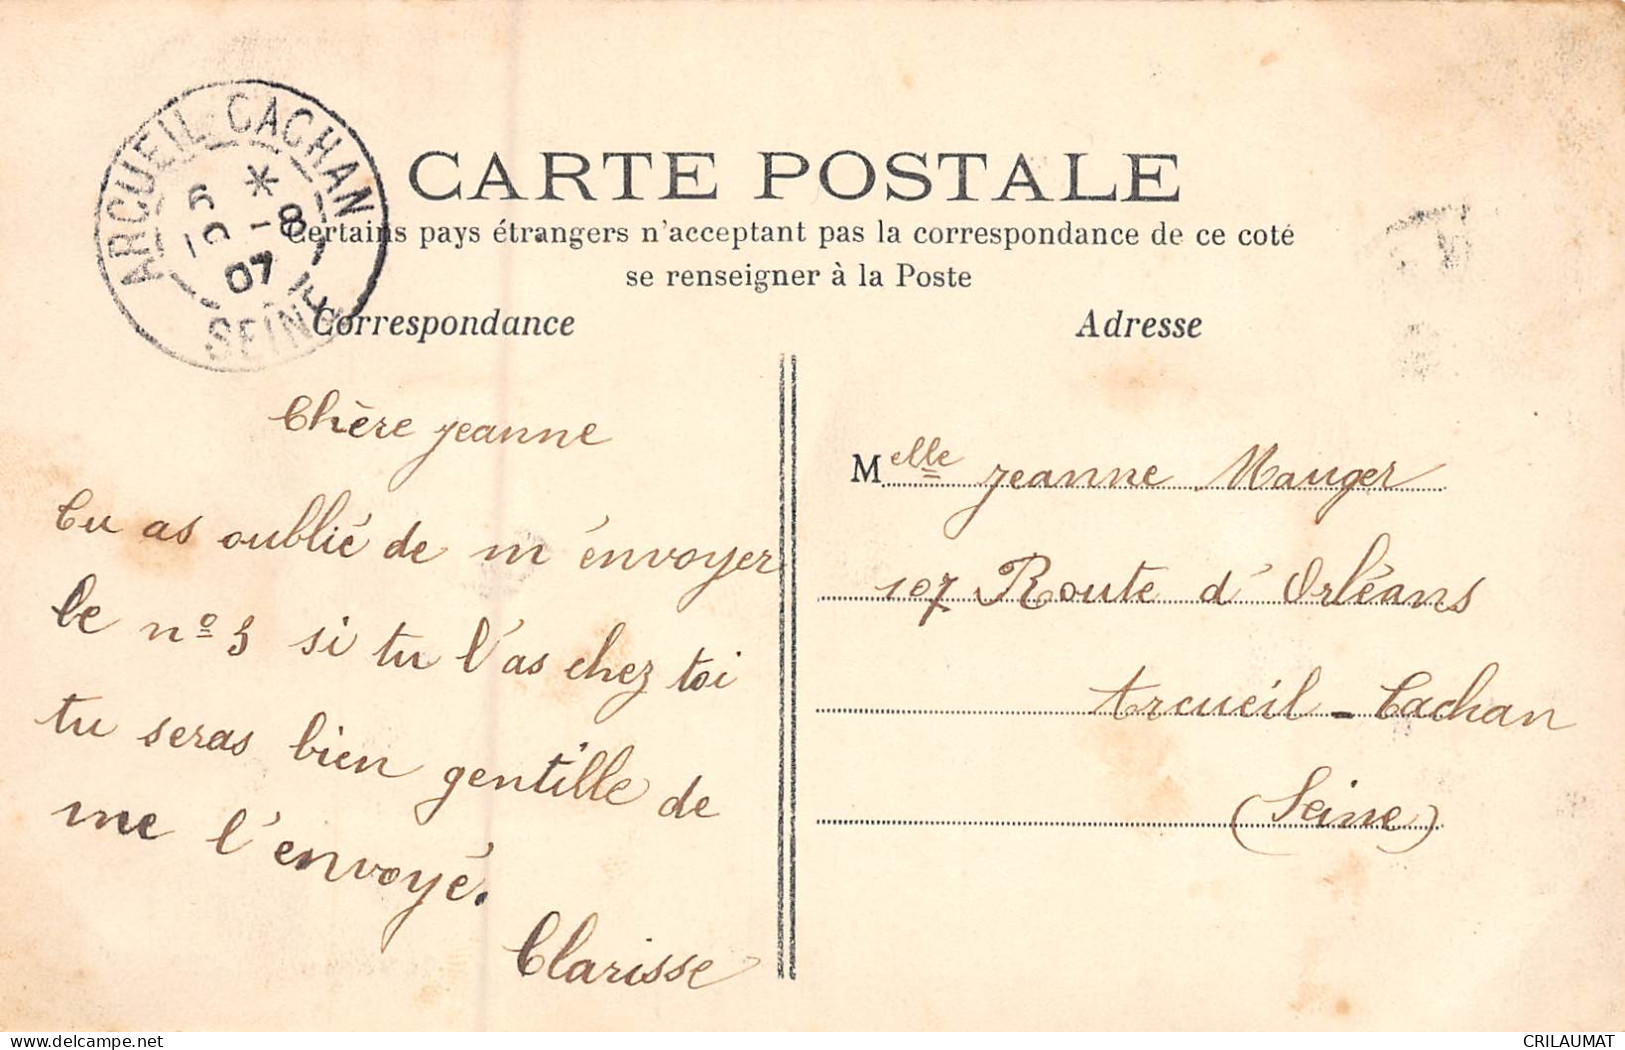 ARCUEIL-CACHAN
6 *
-8
07
SEINE
CARTE POSTALE
Certains pays étrangers n'acceptant pas la correspondance de ce coté
se renseigner à la Poste
Correspondance
Adresse
Chère jeanne
Tu as oublié de m'énvoyer
le nº 5 si tu l'as chez toi
tu seras bien gentille de
me l'envoyé.
Clarisse
Melle jeanne Mauger
107 Route d'Orléans
Arcueil - Cachan
(Seine)
www.delcampe.net
CRILAUMAT